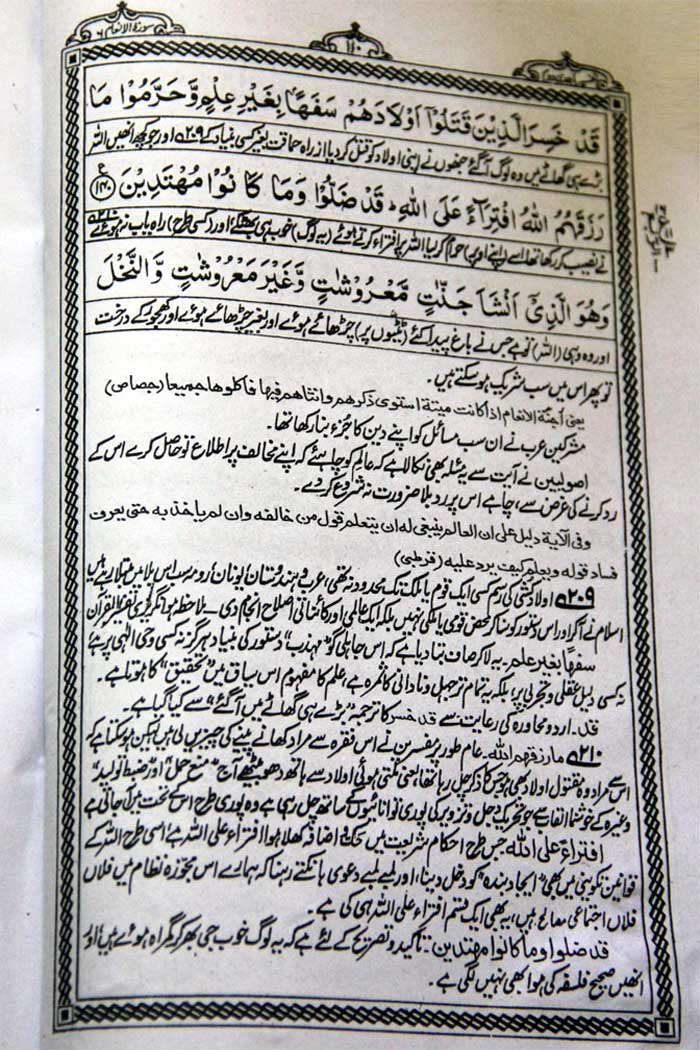 سورۃ الانعام ٦
قَدْ خَسِرَ الَّذِيْنَ قَتَلُوْٓا اَوْلَادَهُمْ سَفَهًۢا بِغَيْرِ عِلْمٍ وَّحَرَّمُوْا مَا
بڑے ہی گھاٹے میں وہ لوگ آگئے جنھوں نے اپنی اولاد کو قتل کر دیا از راہ حماقت بغیر کسی بنیاد کے ۲۰۹ اور جو کچھ انھیں اللہ
رَزَقَهُمُ اللّٰهُ افْتِرَآءً عَلَى اللّٰهِ ؕ قَدْ ضَلُّوْا وَمَا كَانُوْا مُهْتَدِيْنَ ۱۴۰
نے نصیب کر رکھا تھا، اسے (اپنے اوپر) حرام کر لیا اللہ پر افتراء کرتے ہوئے (یہ لوگ) خوب ہی بھٹکے اور (کسی طرح) راہ یاب نہ ہوئے ۲۱۰
وَهُوَ الَّذِيْٓ اَنْشَاَ جَنّٰتٍ مَّعْرُوْشٰتٍ وَّغَيْرَ مَعْرُوْشٰتٍ وَّالنَّخْلَ
اور وہ وہی (اللہ) تو ہے جس نے باغ پیدا کئے (ٹٹیوں پر) چڑھائے ہوئے اور بغیر چڑھائے ہوئے اور کھجور کے درخت
تو پھر اس میں سب شریک ہو سکتے ہیں۔
یعنی اجنۃ الانعام اذا کانت میتۃ استوی ذکرھم وانثاھم فیھا فاکلوھا جمیعا (جصاص)
مشرکین عرب نے ان سب مسائل کو اپنے دین کا جزء بنا رکھا تھا۔
اصولیین نے آیت سے یہ مسئلہ بھی نکالا ہے کہ عالم کو چاہئے کہ اپنے مخالف پر اطلاع تو حاصل کرے اس کے
رد کرنے کی غرض سے، چاہے اس پر رد بلا ضرورت نہ شروع کر دے۔
وفی الآیۃ دلیل علی ان العالم ینبغی لہ ان یتعلم قول من خالفہ وان لم یاخذ بہ حتی یعرف
فساد قولہ ویعلم کیف یرد علیہ (قرطبی)
۲۰۹ اولاد کشی کی رسم کسی ایک قوم یا ملک تک محدود نہ تھی، عرب و ہندوستان، یونان، رومہ سب اس بلا میں مبتلا رہے ہیں
اسلام نے آ کر اور اس دستور کو مٹا کر محض قومی یا ملکی نہیں بلکہ ایک عالمی اور کائناتی اصلاح انجام دی۔ ملاحظہ ہو انگریزی تفسیر القرآن
سفھا بغیر علم۔ یہ لا کر صاف بتا دیا ہے کہ اس جاہلی گو "مہذب" دستور کی بنیاد ہرگز نہ کسی وحی الٰہی پر ہے،
نہ کسی دلیل عقلی و تجربی پر، بلکہ یہ تمام تر جہل و نادانی کا ثمرہ ہے، علم کا مفہوم اس سیاق میں "تحقیق" کا ہوتا ہے۔
قد۔ اردو محاورہ کی رعایت سے قد خسر کا ترجمہ "بڑے ہی گھاٹے میں آگئے" سے کیا گیا ہے۔
۲۱۰ ما رزقھم اللہ۔ عام طور پر مفسرین نے اس فقرہ سے مراد کھانے پینے کی چیزیں لی ہیں لیکن ہو سکتا ہے کہ
اس سے مراد وہ مقتول اولاد بھی ہو جس کا ذکر چل رہا تھا، یعنی ملتی ہوئی اولاد سے ہاتھ دھو بیٹھے آج "منع حمل" اور "ضبط تولید"
وغیرہ کے خوشنما القاب سے جو تحریک دجل و تزویر کی پوری توانائیوں کے ساتھ چل رہی ہے وہ پوری طرح اس کے تحت میں آ جاتی ہے
افتراءً علی اللہ جس طرح احکام شریعت میں حک و اضافہ کھلا ہوا افتراء علی اللہ ہے، اسی طرح اللہ کے
قوانین تکوینی میں بھی "ایجاد بندہ" کو دخل دینا، اور لمبے لمبے دعوی ہانکتے رہنا کہ ہمارے اس مجوزہ نظام میں فلاں
فلاں اجتماعی مصالح ہیں، یہ بھی ایک قسم افتراء علی اللہ ہی کی ہے۔
قد ضلوا وما کانوا مھتدین۔ تاکید و تصریح کے لئے ہے کہ یہ لوگ خوب جی بھر کر گمراہ ہوئے ہیں، اور
انھیں صحیح فلسفہ کی ہوا بھی نہیں لگی ہے۔